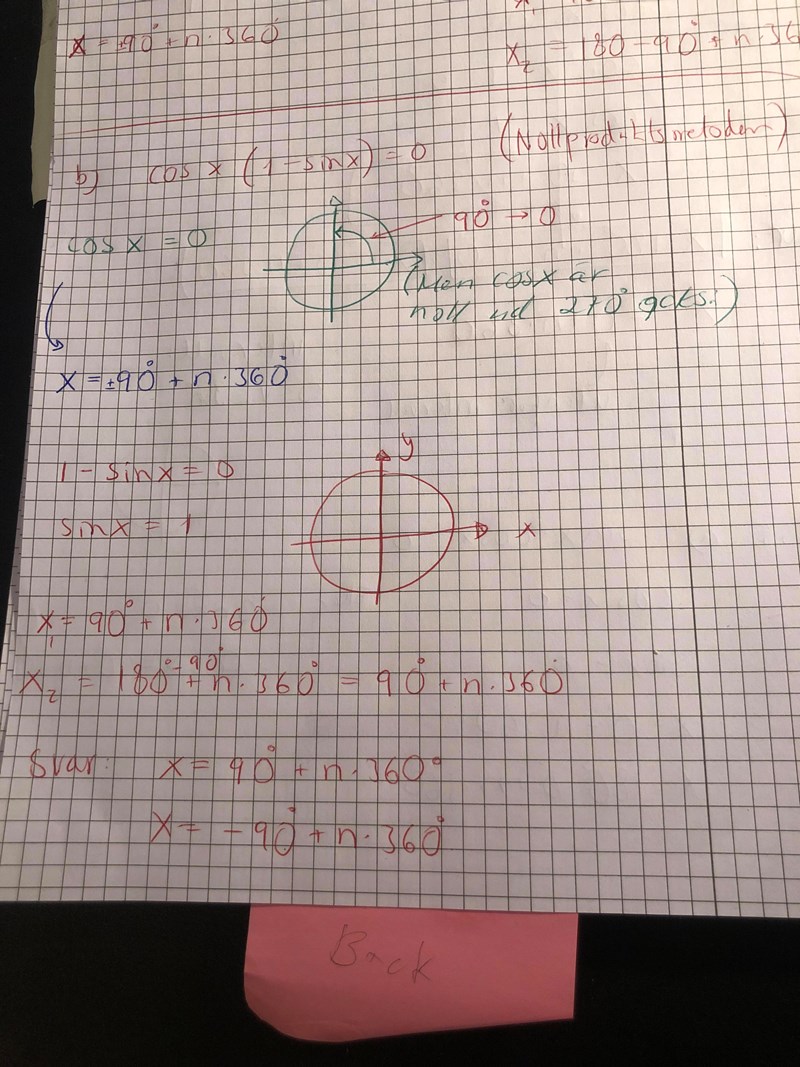 x = ±90° + n·360°
x₂ = 180 - 90° + n·36
b) cos x (1 - sinx) = 0 (Nollproduktsmetoden)
cos x = 0
90° → 0
(Men cosx är
noll vid 270° också.)
x = ±90° + n·360°
1 - sinx = 0
y
sinx = 1
x
x₁ = 90° + n·360°
x₂ = 180° - 90° + n·360° = 90° + n·360°
Svar: x = 90° + n·360°
x = -90° + n·360°
Back